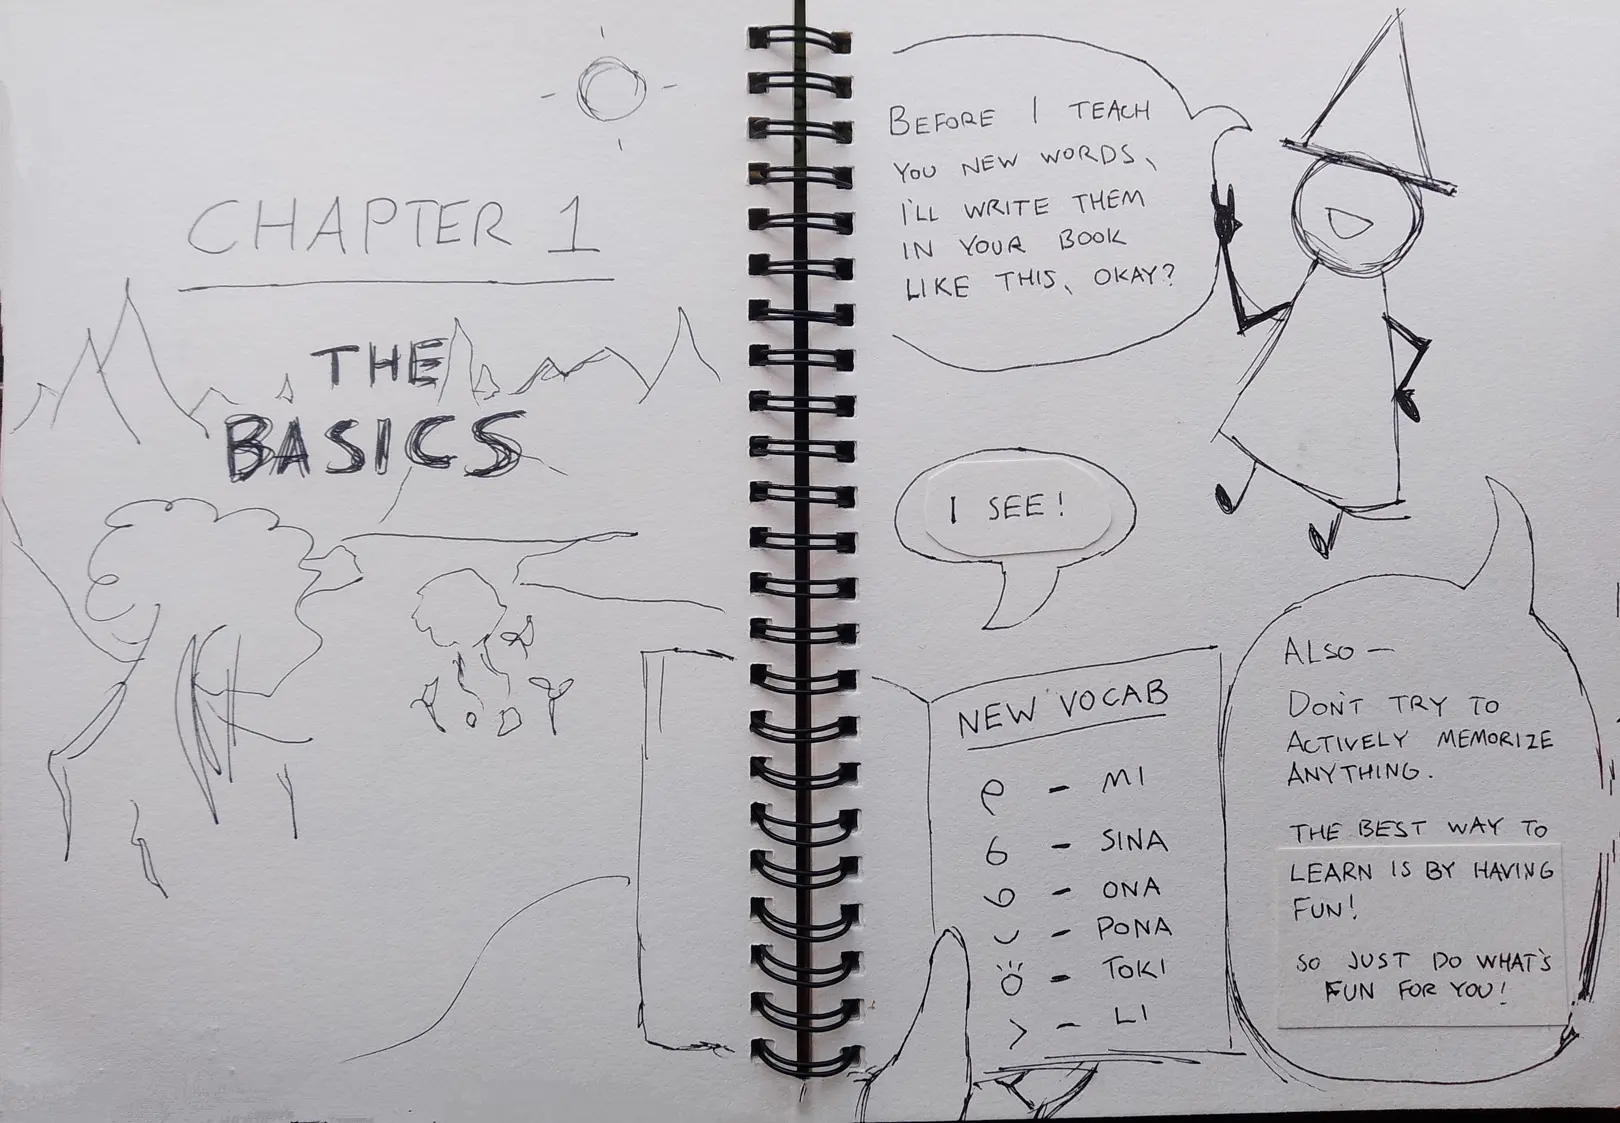 CHAPTER 1
THE
BASICS
BEFORE I TEACH
YOU NEW WORDS,
I'LL WRITE THEM
IN YOUR BOOK
LIKE THIS, OKAY?
I SEE!
NEW VOCAB
- MI
- SINA
- ONA
- PONA
- TOKI
- LI
ALSO —
DON'T TRY TO
ACTIVELY MEMORIZE
ANYTHING.
THE BEST WAY TO
LEARN IS BY HAVING
FUN!
SO JUST DO WHAT'S
FUN FOR YOU!